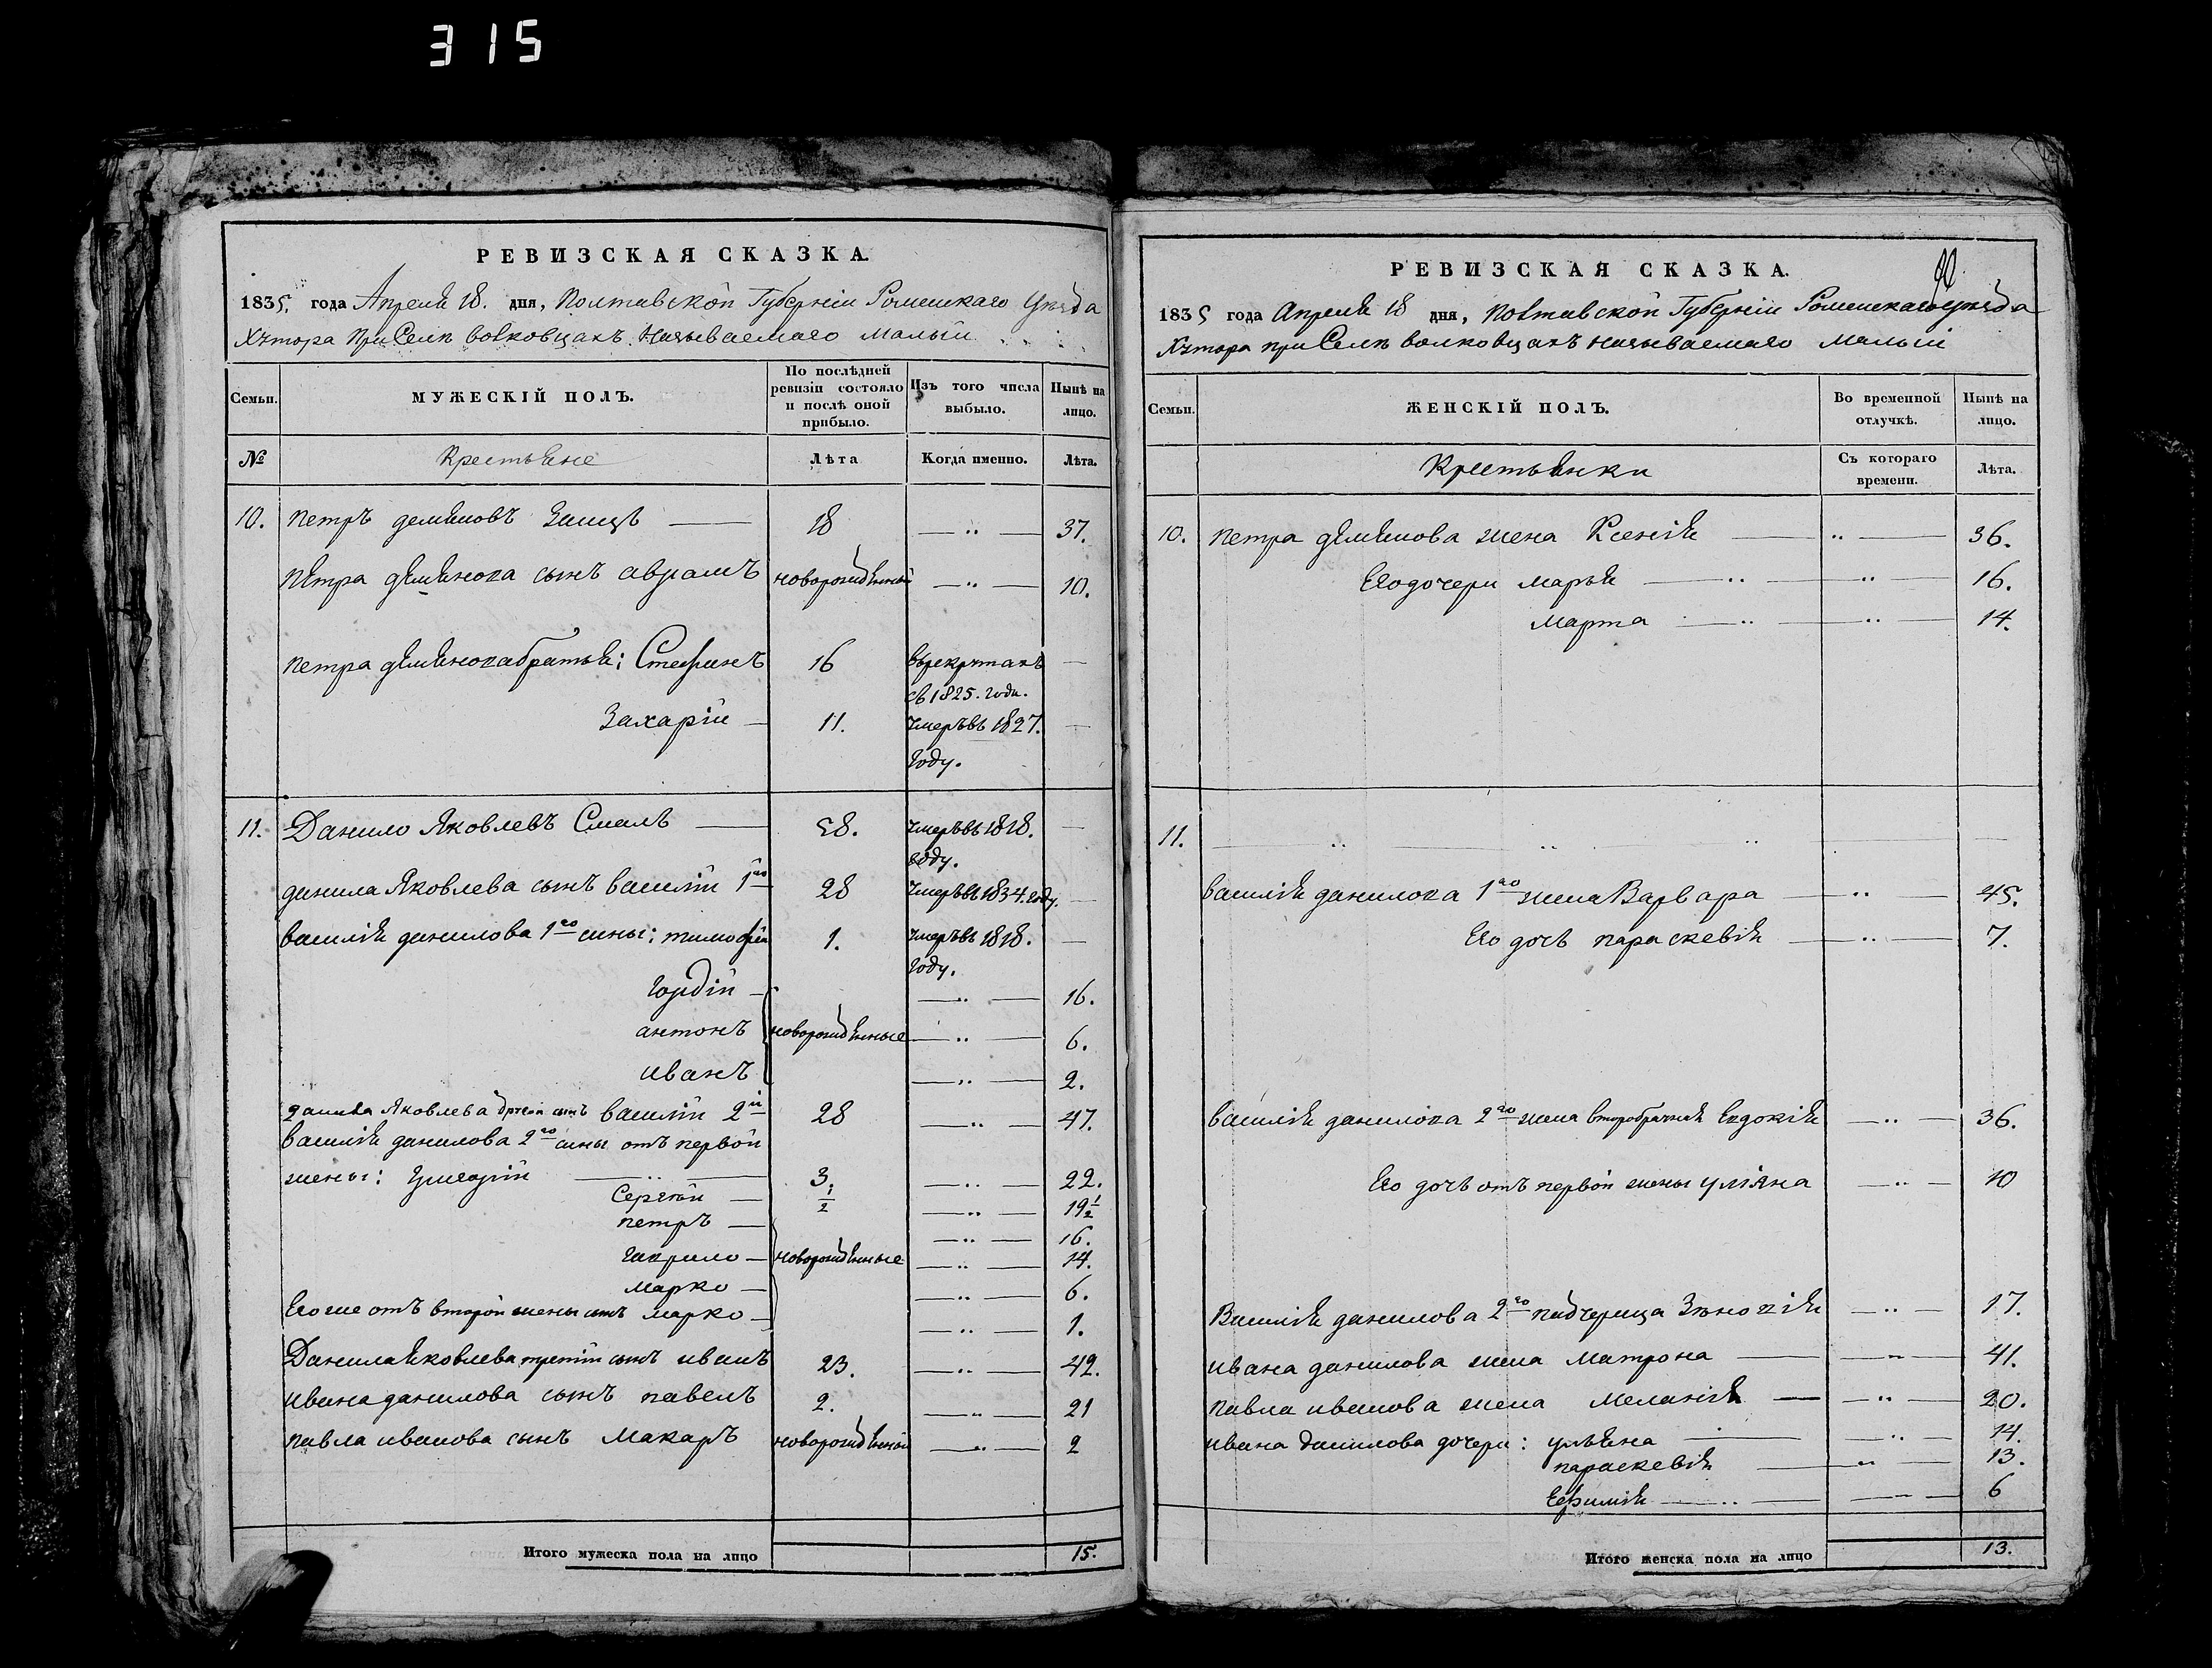 315
РЕВИЗСКАЯ СКАЗКА.
1835. года Апреля 18. дня, Полтавской Губерніи Роменскаго Уѣзда
Хутора при Селѣ Волковцахъ называемаго Малыи
Семьи.
МУЖЕСКІЙ ПОЛЪ.
По послѣдней ревизіи состояло и послѣ оной прибыло.
Изъ того числа выбыло.
Нынѣ на лицо.
№ Крестьяне Лѣта Когда именно. Лѣта.
10. Петръ демяновъ Заицъ 18 37.
Петра демянова сынъ аврамъ новорожденный 10.
петра демянова братья: Стефанъ 16 въ рекрутахъ
съ 1825. года.
Захарій 11. умеръ въ 1827.
году.
11. Данило Яковлевъ Смалъ 58. умеръ въ 1818.
году.
данила Яковлева сынъ василій 1й 28 умеръ въ 1834. году.
василія данилова 1го сыны: тимофей 1. умеръ въ 1818.
году.
Гордій 16.
антонъ новорожденные 6.
иванъ 2.
данила Яковлева другой сынъ василій 2й 28 47.
василія данилова 2го сыны отъ первой
жены: Григорій 3. 22.
Сергѣй 1/2 19 1/2
петръ 16.
гаврило новорожденные 14.
марко 6.
Его же отъ второй жены сынъ марко 1.
Данила Яковлева третій сынъ иванъ 23. 42.
ивана данилова сынъ павелъ 2. 21
павла иванова сынъ Макаръ новорожденный 2
Итого мужеска пола на лицо 15.
РЕВИЗСКАЯ СКАЗКА.
1835 года Апреля 18 дня, Полтавской Губерніи Роменскаго уѣзда
Хутора при Селѣ волковцахъ называемаго Малыи
Семьи.
ЖЕНСКІЙ ПОЛЪ.
Во временной отлучкѣ.
Нынѣ на лицо.
Крестьянки Съ котораго времени. Лѣта.
10. Петра демянова жена Ксенія 36.
Его дочери марья 16.
Марта 14.
11.
василія данилова 1го жена Варвара 45.
Его дочь параскевія 7.
василія данилова 2го жена второбрачная Евдокія 36.
Его дочь отъ первой жены уліяна 10
Василія данилова 2го падчерица Зѣновія 17.
ивана данилова жена Матрона 41.
павла иванова жена Меланія 20.
ивана данилова дочери: ульяна 14.
параскевія 13.
Ефимія 6
Итого женска пола на лицо 13.